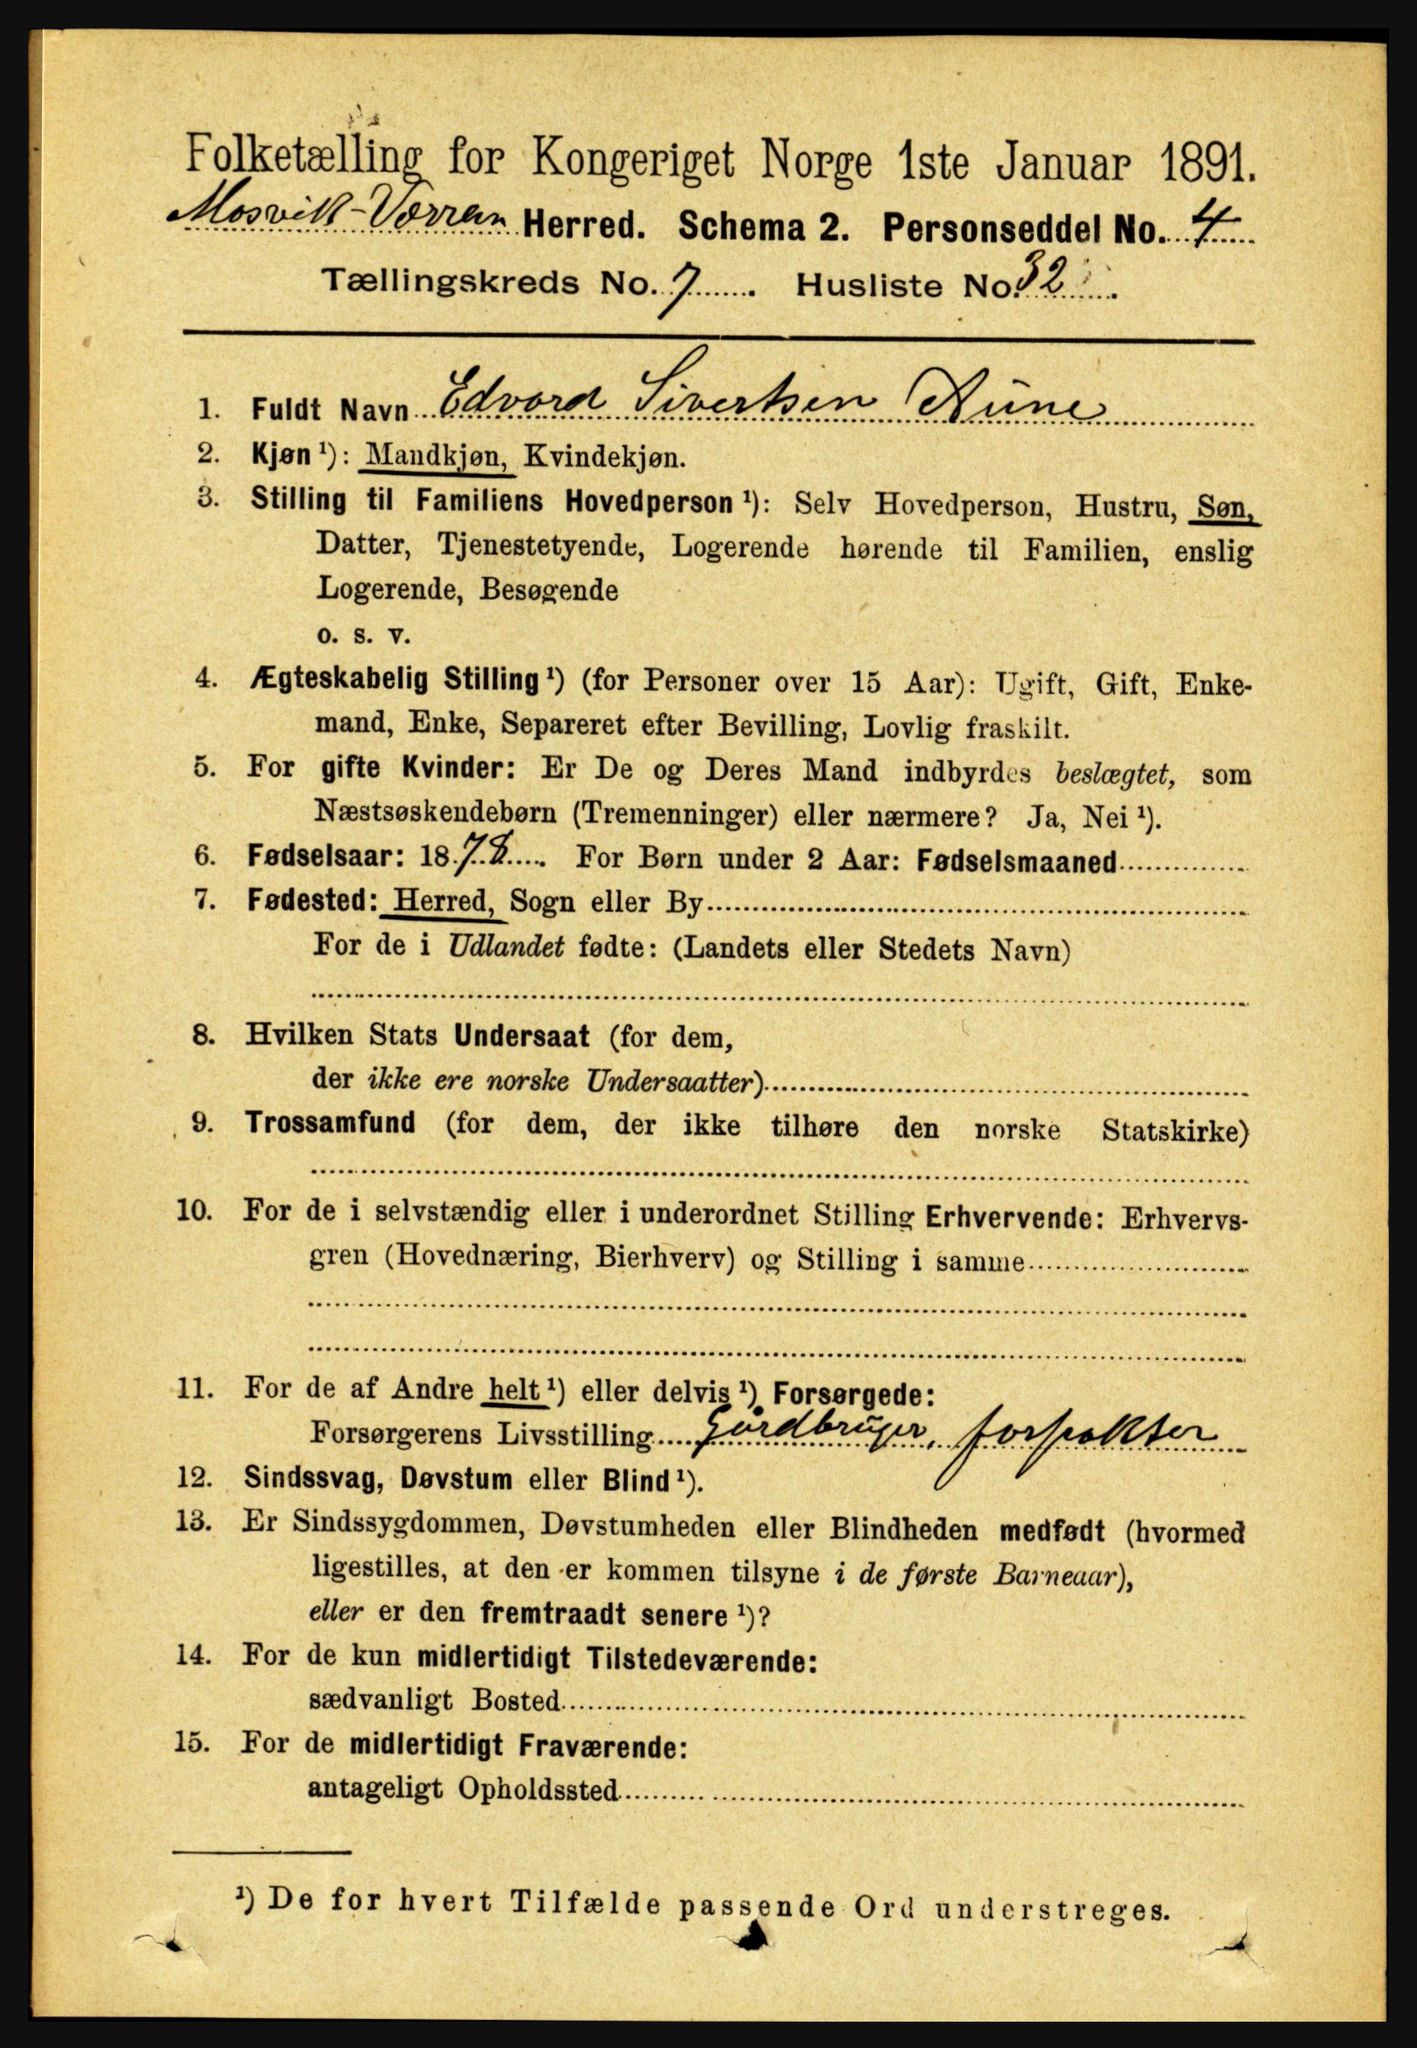 Folketælling for Kongeriget Norge 1ste Januar 1891.
Mosvik-Værran Herred. Schema 2. Personseddel No. 4
Tællingskreds No. 7. Husliste No. 32.
1. Fuldt Navn Edvard Sivertsen Aune
2. Kjøn ¹): Mandkjøn, Kvindekjøn.
3. Stilling til Familiens Hovedperson ¹): Selv Hovedperson, Hustru, Søn,
Datter, Tjenestetyende, Logerende hørende til Familien, enslig
Logerende, Besøgende
o. s. v.
4. Ægteskabelig Stilling ¹) (for Personer over 15 Aar): Ugift, Gift, Enke-
mand, Enke, Separeret efter Bevilling, Lovlig fraskilt.
5. For gifte Kvinder: Er De og Deres Mand indbyrdes beslægtet, som
Næstsøskendebørn (Tremenninger) eller nærmere? Ja, Nei ¹).
6. Fødselsaar: 1878. For Børn under 2 Aar: Fødselsmaaned
7. Fødested: Herred, Sogn eller By
For de i Udlandet fødte: (Landets eller Stedets Navn)
8. Hvilken Stats Undersaat (for dem,
der ikke ere norske Undersaatter)
9. Trossamfund (for dem, der ikke tilhøre den norske Statskirke)
10. For de i selvstændig eller i underordnet Stilling Erhvervende: Erhvervs-
gren (Hovednæring, Bierhverv) og Stilling i samme
11. For de af Andre helt ¹) eller delvis ¹) Forsørgede:
Forsørgerens Livsstilling Gårdbruger, forpakter
12. Sindssvag, Døvstum eller Blind ¹).
13. Er Sindssygdommen, Døvstumheden eller Blindheden medfødt (hvormed
ligestilles, at den er kommen tilsyne i de første Barneaar),
eller er den fremtraadt senere ¹)?
14. For de kun midlertidigt Tilstedeværende:
sædvanligt Bosted
15. For de midlertidigt Fraværende:
antageligt Opholdssted
¹) De for hvert Tilfælde passende Ord understreges.